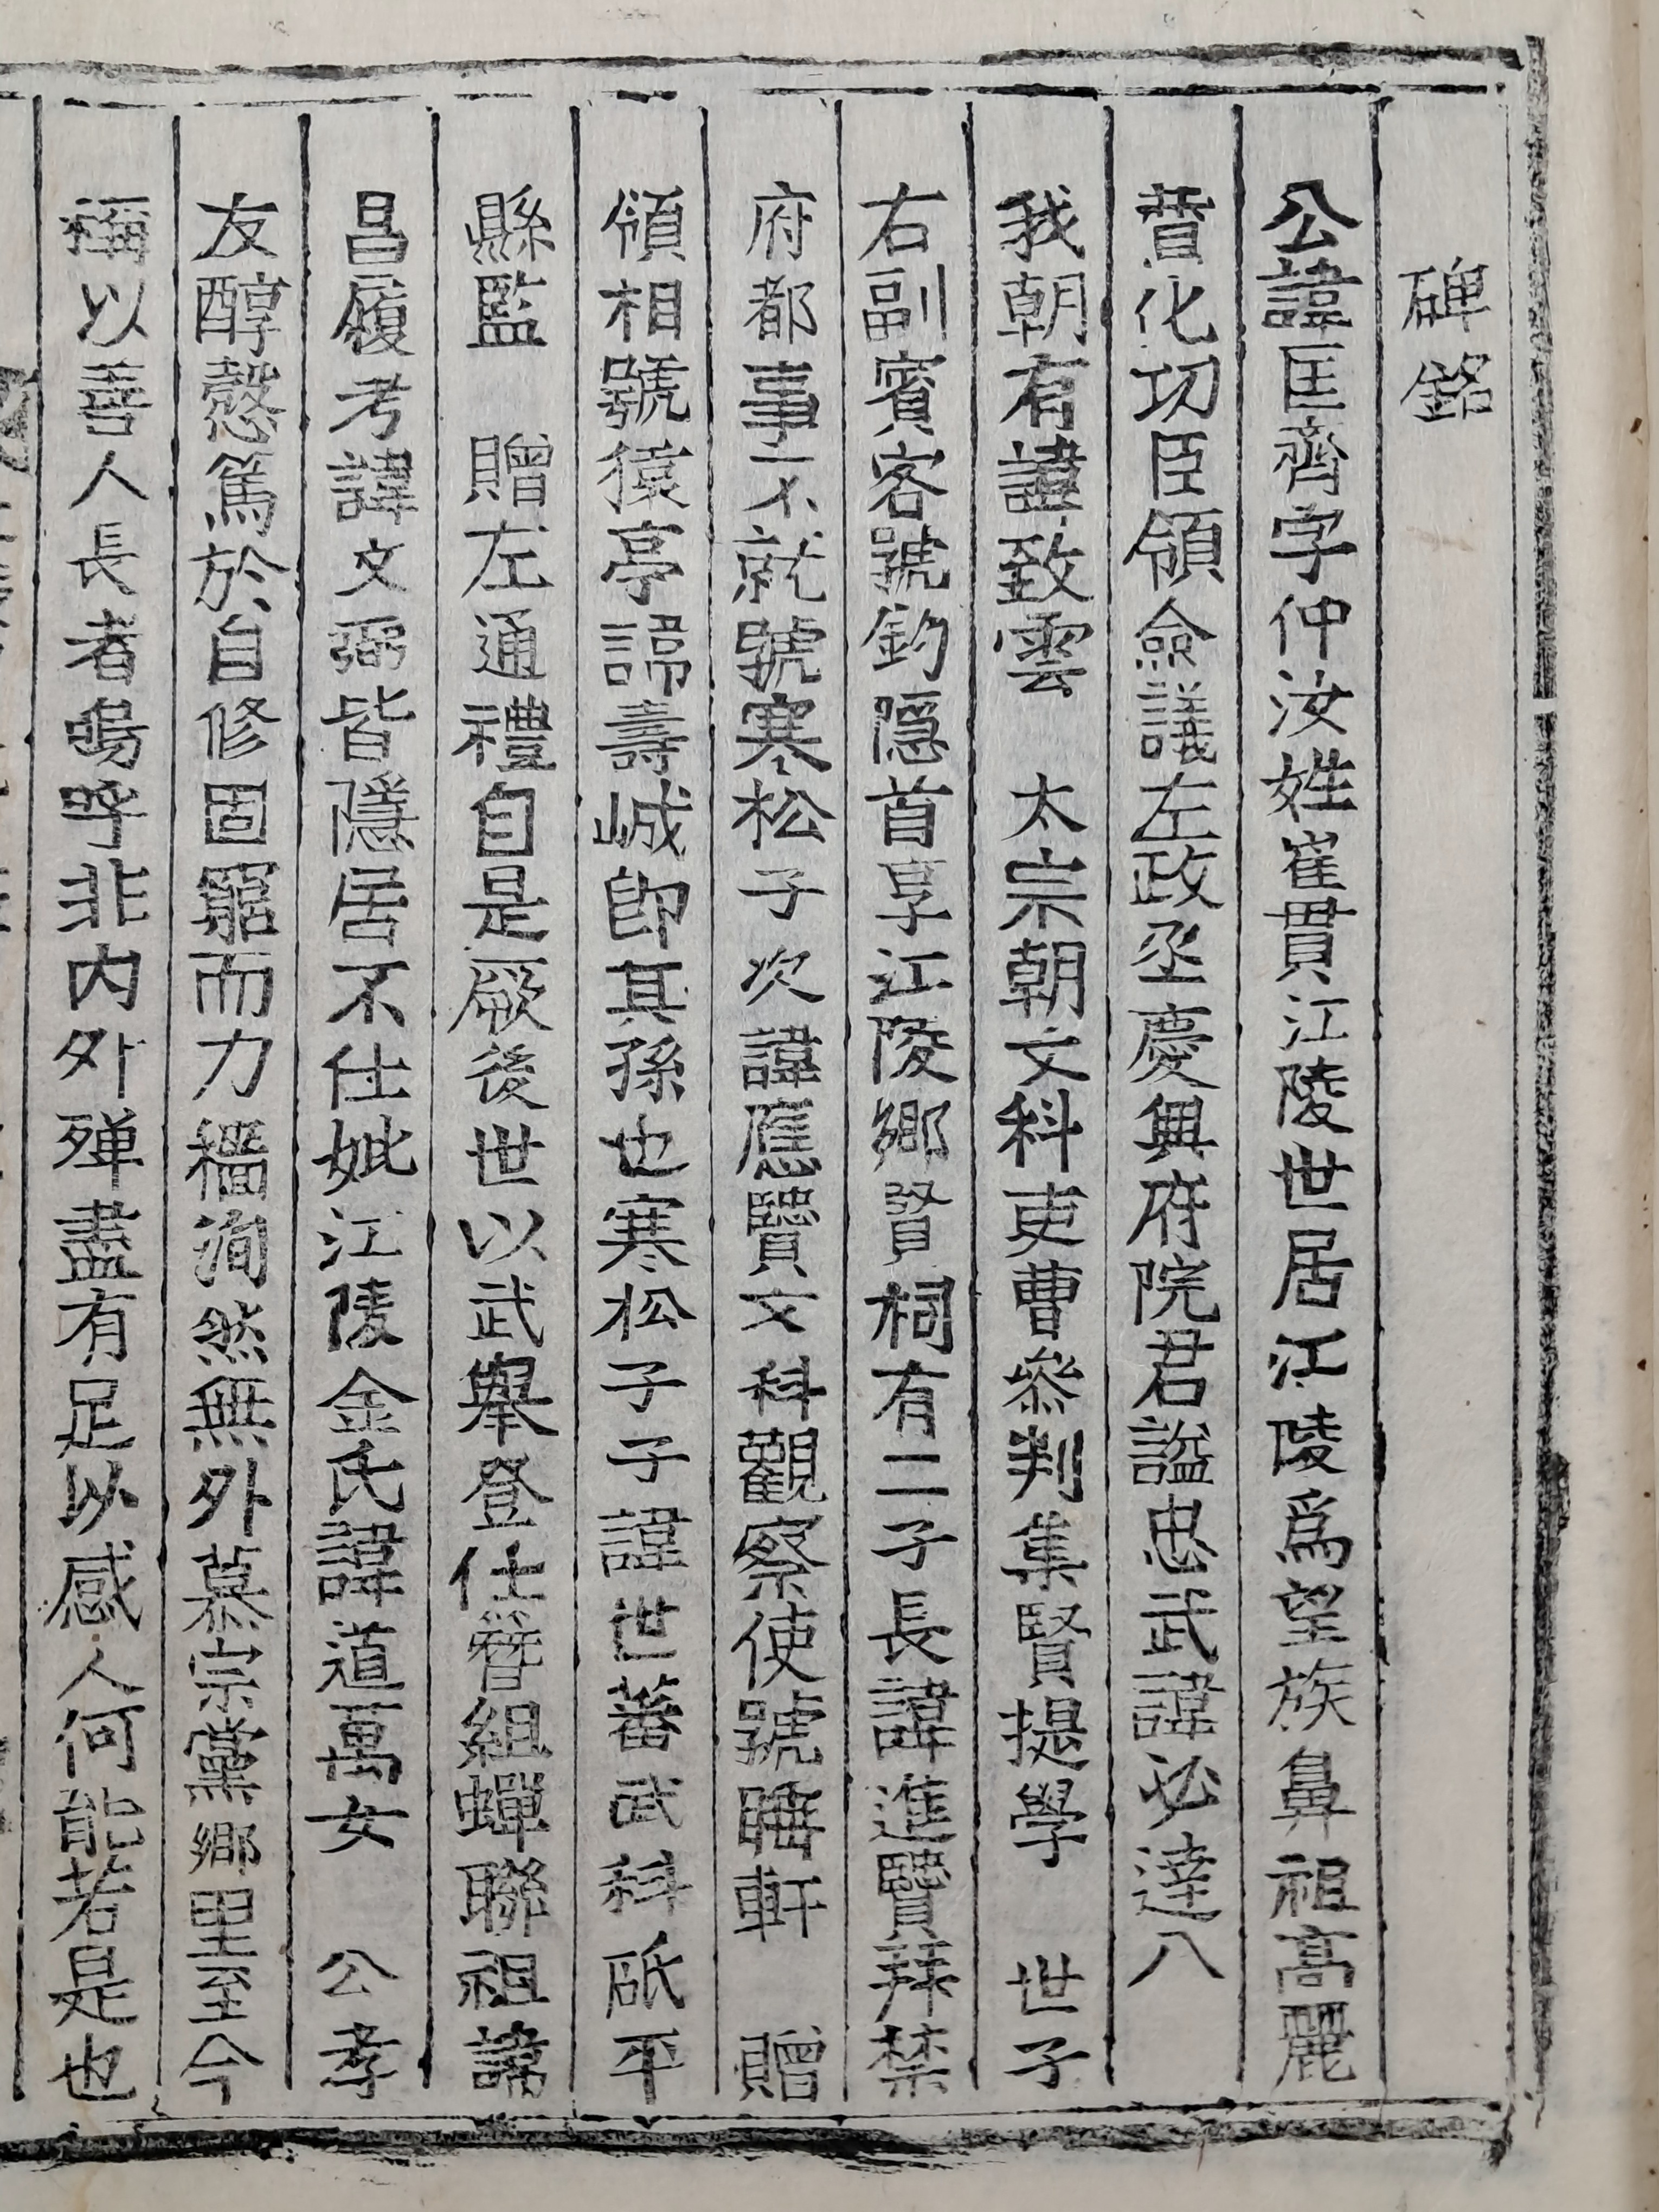 碑銘
公諱匡齊字仲汝姓崔貫江陵世居江陵爲望族鼻祖高麗
賛化功臣領僉議左政丞慶興府院君諡忠武諱必達入
我朝有諱致雲　太宗朝文科吏曹參判集賢提學　世子
右副賓客號釣隱首享江陵鄕賢祠有二子長諱進賢拜禁
府都事不就號寒松子次諱應賢文科觀察使號睡軒　贈
領相號猿亭諡壽峸卽其孫也寒松子子諱世蕃武科砥平
縣監　贈左通禮自是厥後世以武擧登仕簪組蟬聯祖諱
昌履考諱文弼皆隱居不仕妣江陵金氏諱道萬女　公孝
友醇慤篤於自修固窮而力穡洵然無外慕宗黨鄕里至今
稱以善人長者嗚呼非內外殫盡有足以感人何能若是也